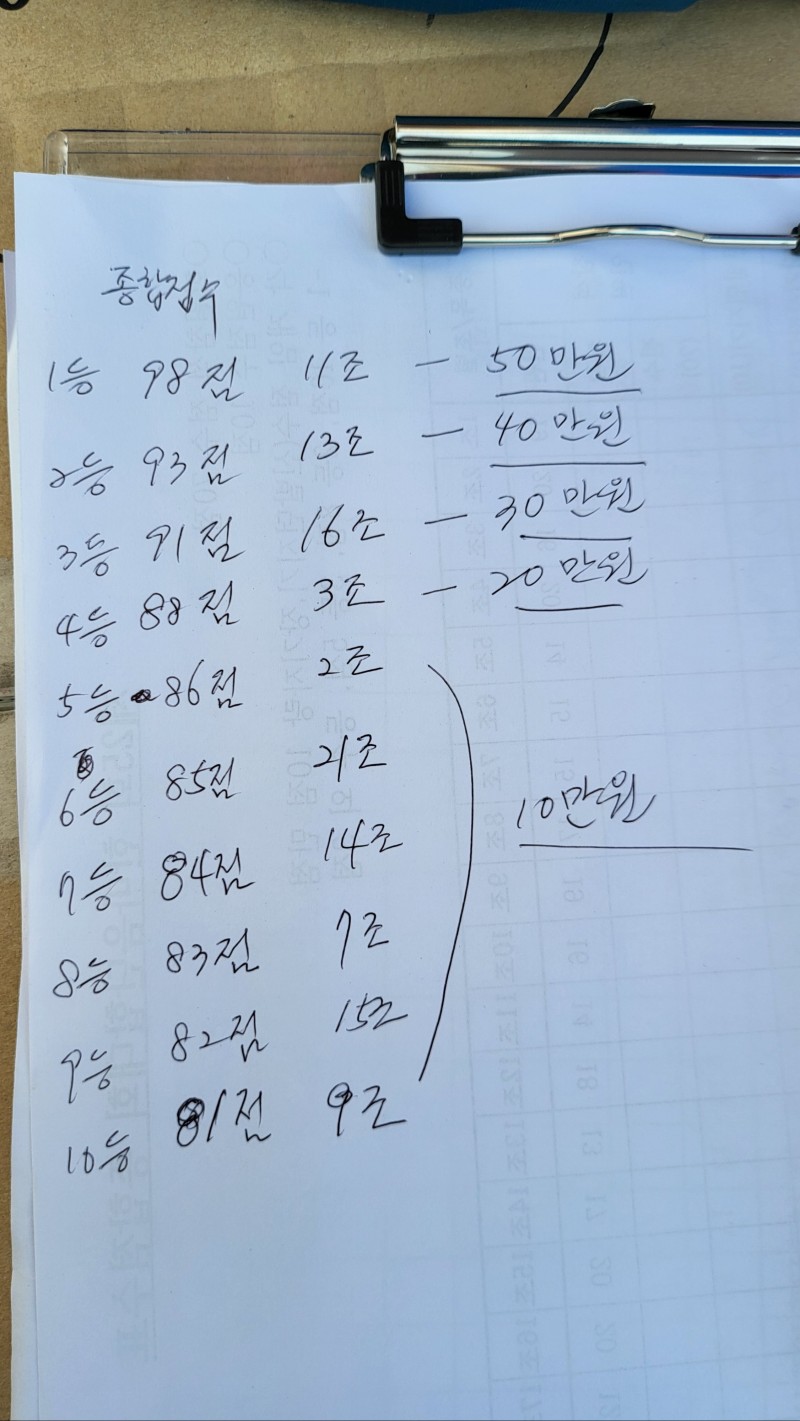 종합점수
1등 98점 11조 - 50만원
2등 93점 13조 - 40만원
3등 91점 16조 - 30만원
4등 88점 3조 - 20만원
5등 86점 2조
6등 85점 21조
7등 84점 14조
10만원
8등 83점 7조
9등 82점 15조
10등 81점 9조